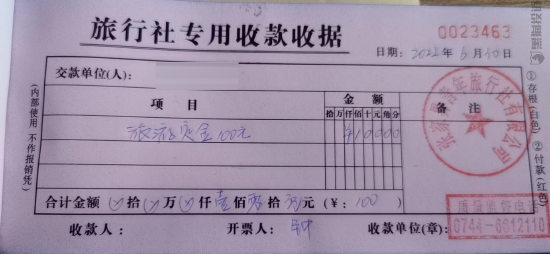 旅行社专用收款收据
0023463
日期：2022年6月30日
交款单位(人)：
项目 金额 备注
拾万仟佰十元角分
旅游定金100元 ¥10000
合计金额 拾 万 仟壹佰零拾 元 (¥：100)
收款人： 开票人： 钟 收款单位(章)：
(内部使用 不作报销凭)
①存根(白色) ②付款(红色)
青年旅行社有限公司
质量监督电话
0744-6612110